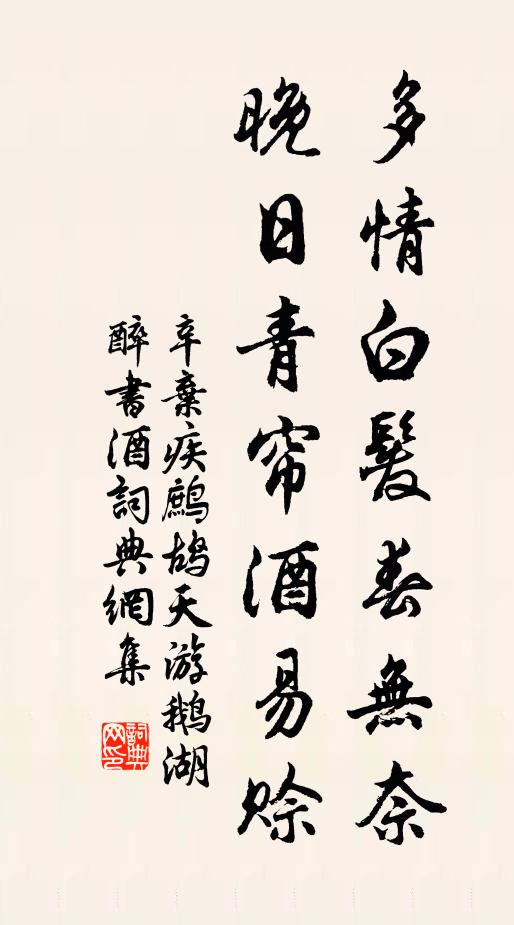 多情白髮春無奈
晚日青帘酒易赊
辛棄疾鷓鴣天游鵝湖
醉書酒詞典網集
詞典
网印